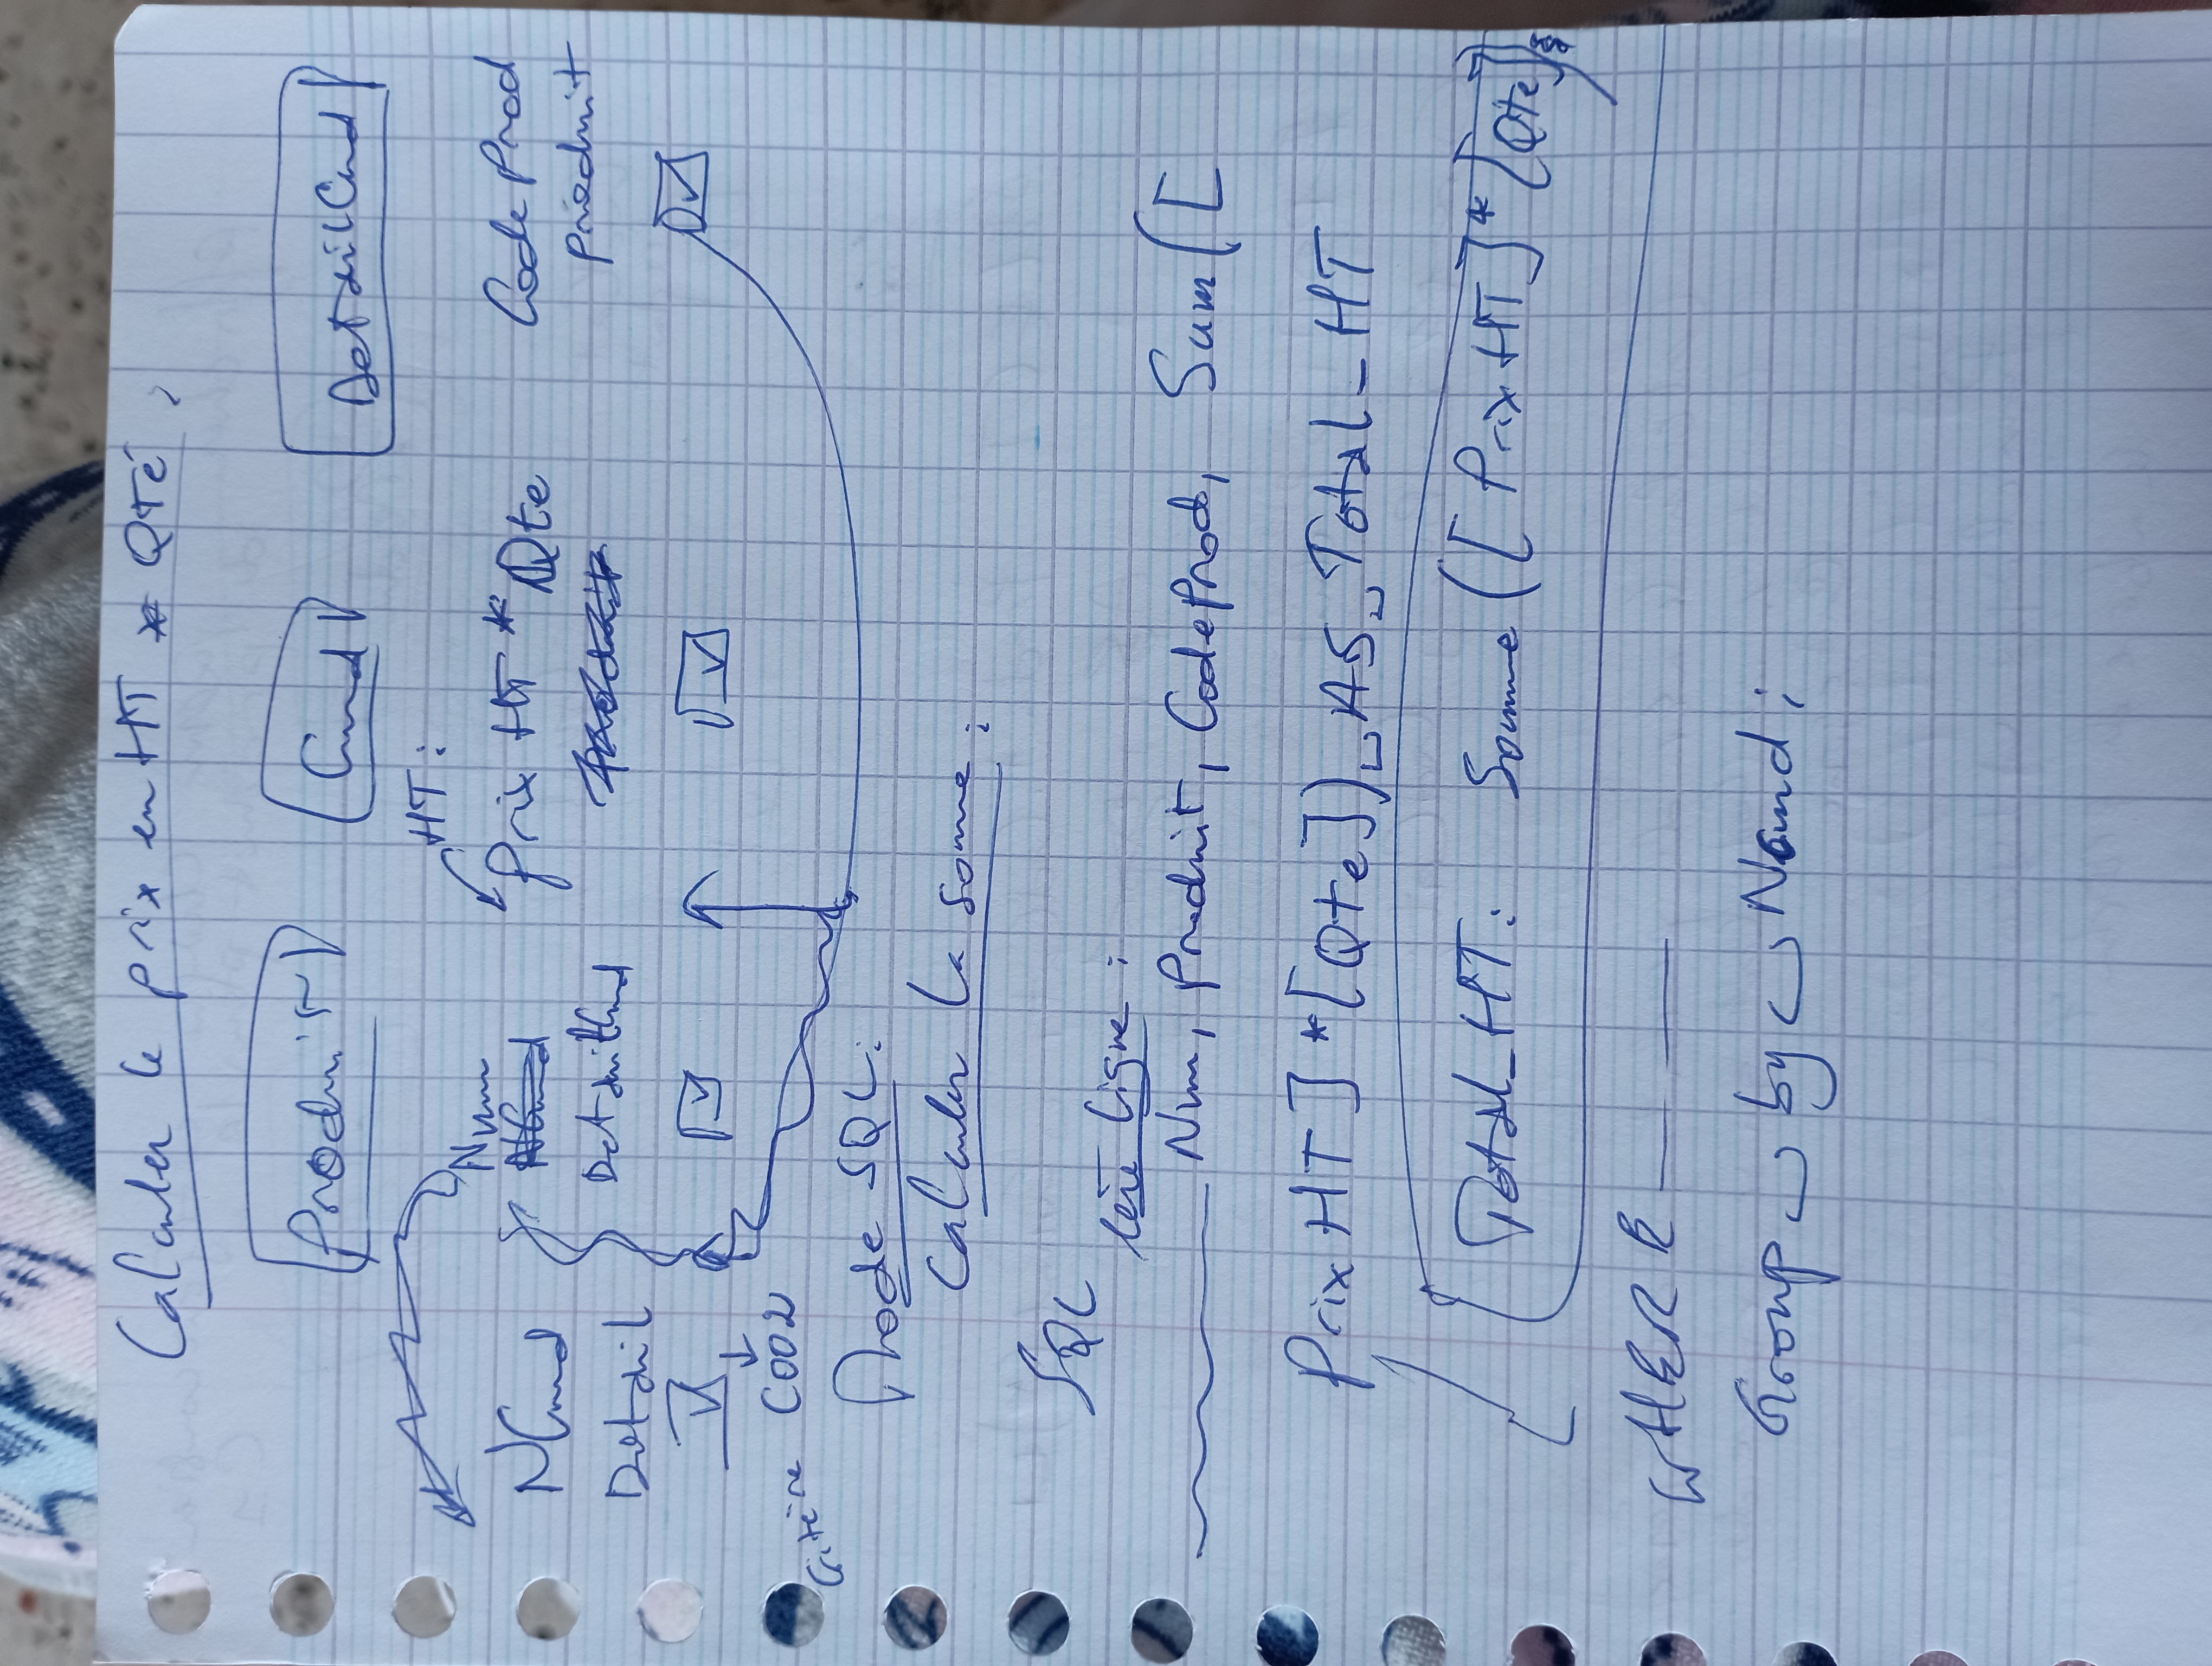 Calculer le prix en HT * QTé ;
Produit Cmd DetailCmd
HT :
Num
NCmd Prix HT * Qte CodeProd
Detail DetailCmd produit
critère C002
Mode SQL :
Calculer la somme :
SQL
1ère ligne :
Num, Produit, CodeProd, Sum ([
Prix HT ] * [Qte]) AS Total_HT
Total_HT : Somme ([ Prix HT ] * [Qte])
WHERE
Group by Ncmd ;